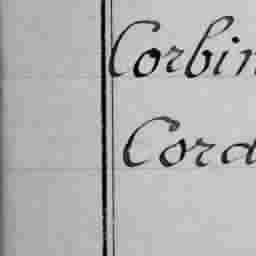 Corbin
Cord